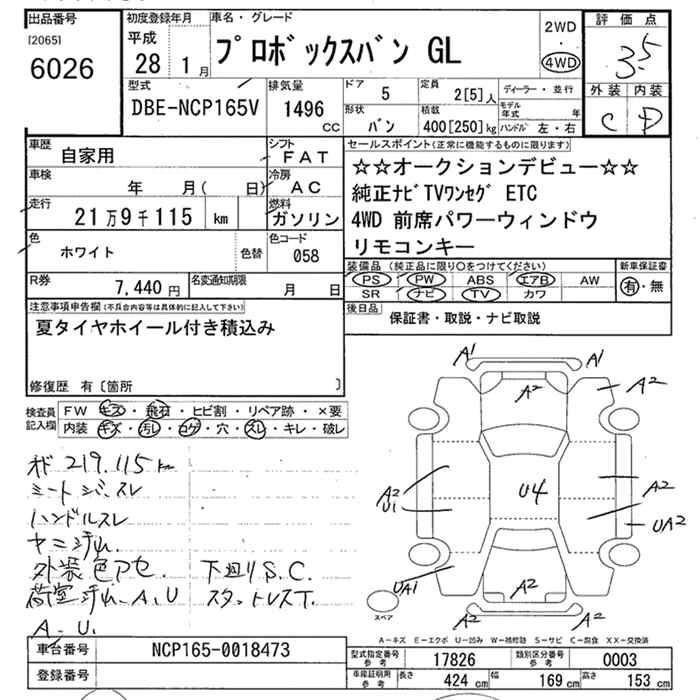 出品番号
[2065]
6026
初度登録年月
平成
28 1月
車名・グレード
プロボックスバン GL
2WD
・
4WD
評価点
3.5
外装 内装
C D
型式
DBE-NCP165V
排気量
1496
CC
ドア
5
定員
2[5]人
ディーラー・並行
モデル年式 年
形状
バン
積載
400[250]kg
ハンドル 左・右
車歴
自家用
シフト
FAT
車検
年 月( 日)
冷房
AC
走行
21万9千115 km
燃料
ガソリン
色
ホワイト
色替
色コード
058
R券
7,440円
名変通知期限
月 日
セールスポイント(正常に機能するものに限ります)
☆☆オークションデビュー☆☆
純正ナビTVワンセグ ETC
4WD 前席パワーウィンドウ
リモコンキー
装備品(純正品に限り○をつけてください)
PS PW ABS エアB AW
SR ナビ TV カワ
新車保証書
有・無
後日品
保証書・取説・ナビ取説
注意事項申告欄(不具合内容等は具体的に記入して下さい)
夏タイヤホイール付き積込み
修復歴 有〔箇所 〕
検査員
記入欄
FW キズ・飛石・ヒビ割・リペア跡・×要
内装 キズ・汚レ・コゲ・穴・スレ・キレ・破レ
219.115km
シートシバ、スレ
ハンドルスレ
ヤニ汚れ.
外装色アセ. 下廻りS.C.
荷室汚れ.A.U スタットレスT.
A.U.
A1 A1
A2 A2
A2
U1
U4
A2
UA2
UA1
A2
A2 A2
スペア
A－キズ E－エクボ U－凹み W－補修跡 S－サビ C－腐食 XX－交換済
車台番号
NCP165-0018473
登録番号
型式指定番号
参考
17826
類別区分番号
参考
0003
車検証明用
参考
長さ
424 cm
幅
169 cm
高さ
153 cm